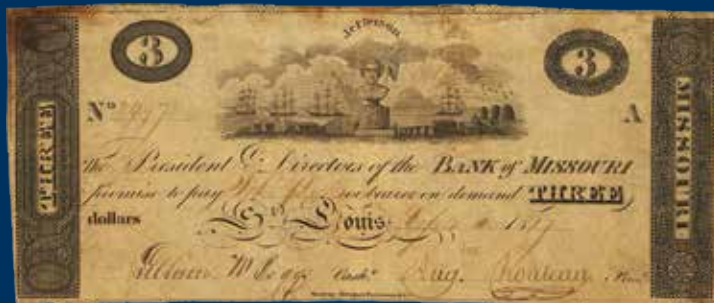 Jefferson
3 3
No A
THREE
MISSOURI
The President & Directors of the BANK of MISSOURI
promise to pay or bearer on demand THREE
dollars St. Louis 1817
Cashr. Aug. Chouteau Prest.